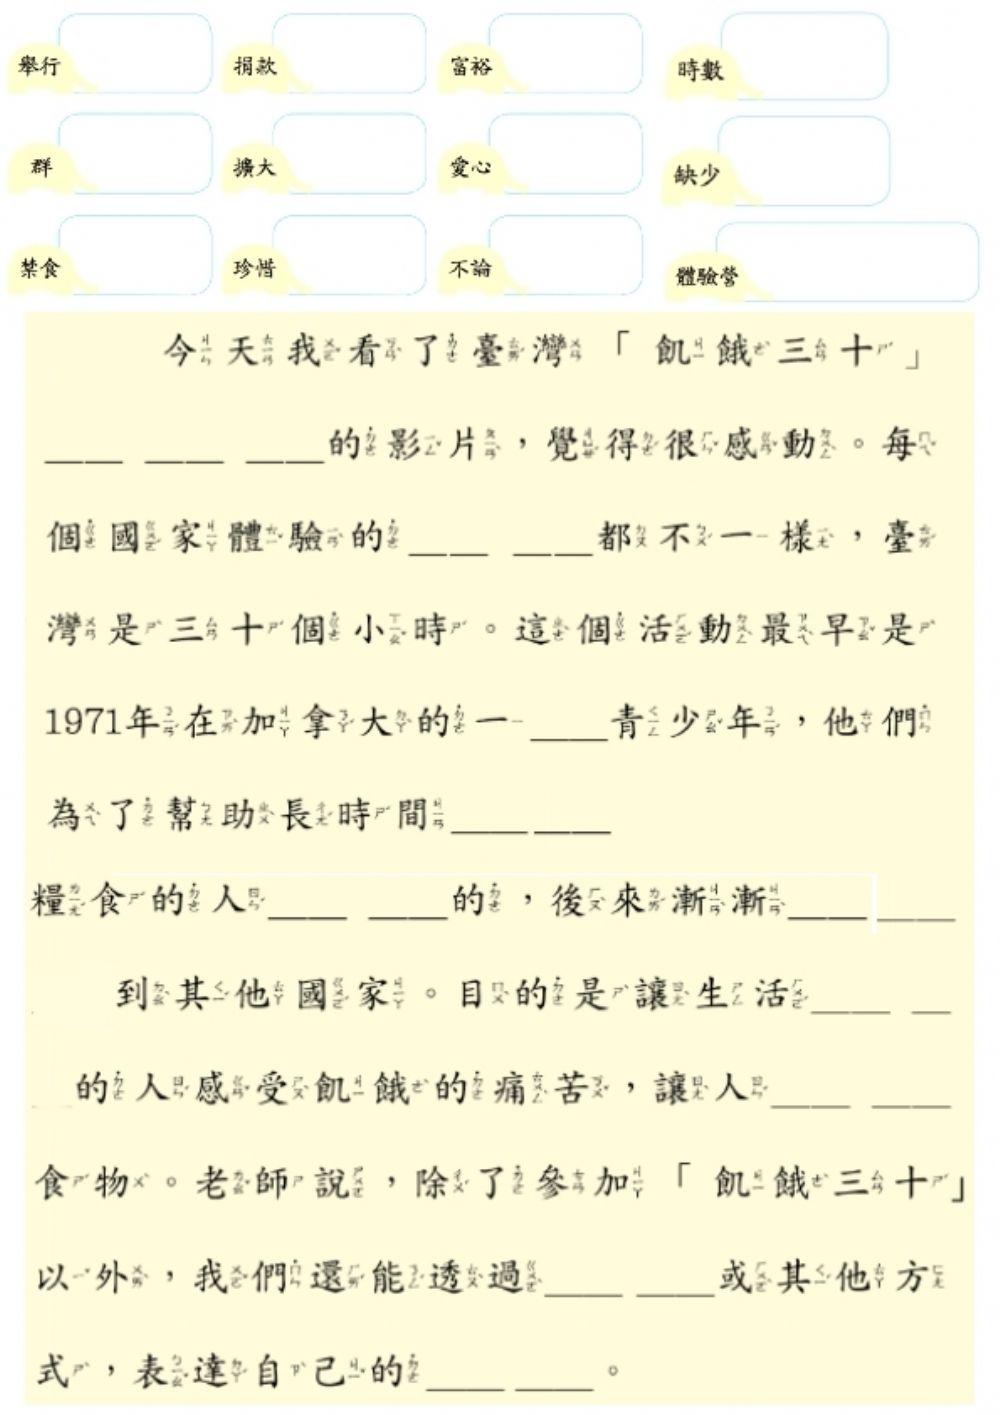 舉行 捐款 富裕 時數
群 擴大 愛心 缺少
禁食 珍惜 不論 體驗營
今天我看了臺灣「飢餓三十」
____ ____ ____的影片，覺得很感動。每
個國家體驗的____ ____都不一樣，臺
灣是三十個小時。這個活動最早是
1971年在加拿大的一____青少年，他們
為了幫助長時間____ ____
糧食的人____ ____的，後來漸漸____ ____
到其他國家。目的是讓生活____ __
的人感受飢餓的痛苦，讓人____ ____
食物。老師說，除了參加「飢餓三十」
以外，我們還能透過____ ____或其他方
式，表達自己的____ ____。